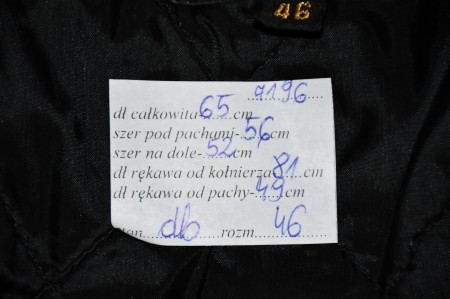 46
7196
dł całkowita-65cm
szer pod pachami-56cm
szer na dole-52cm
dł rękawa od kołnierza 81 cm
dł rękawa od pachy-49cm
stan db rozm 46